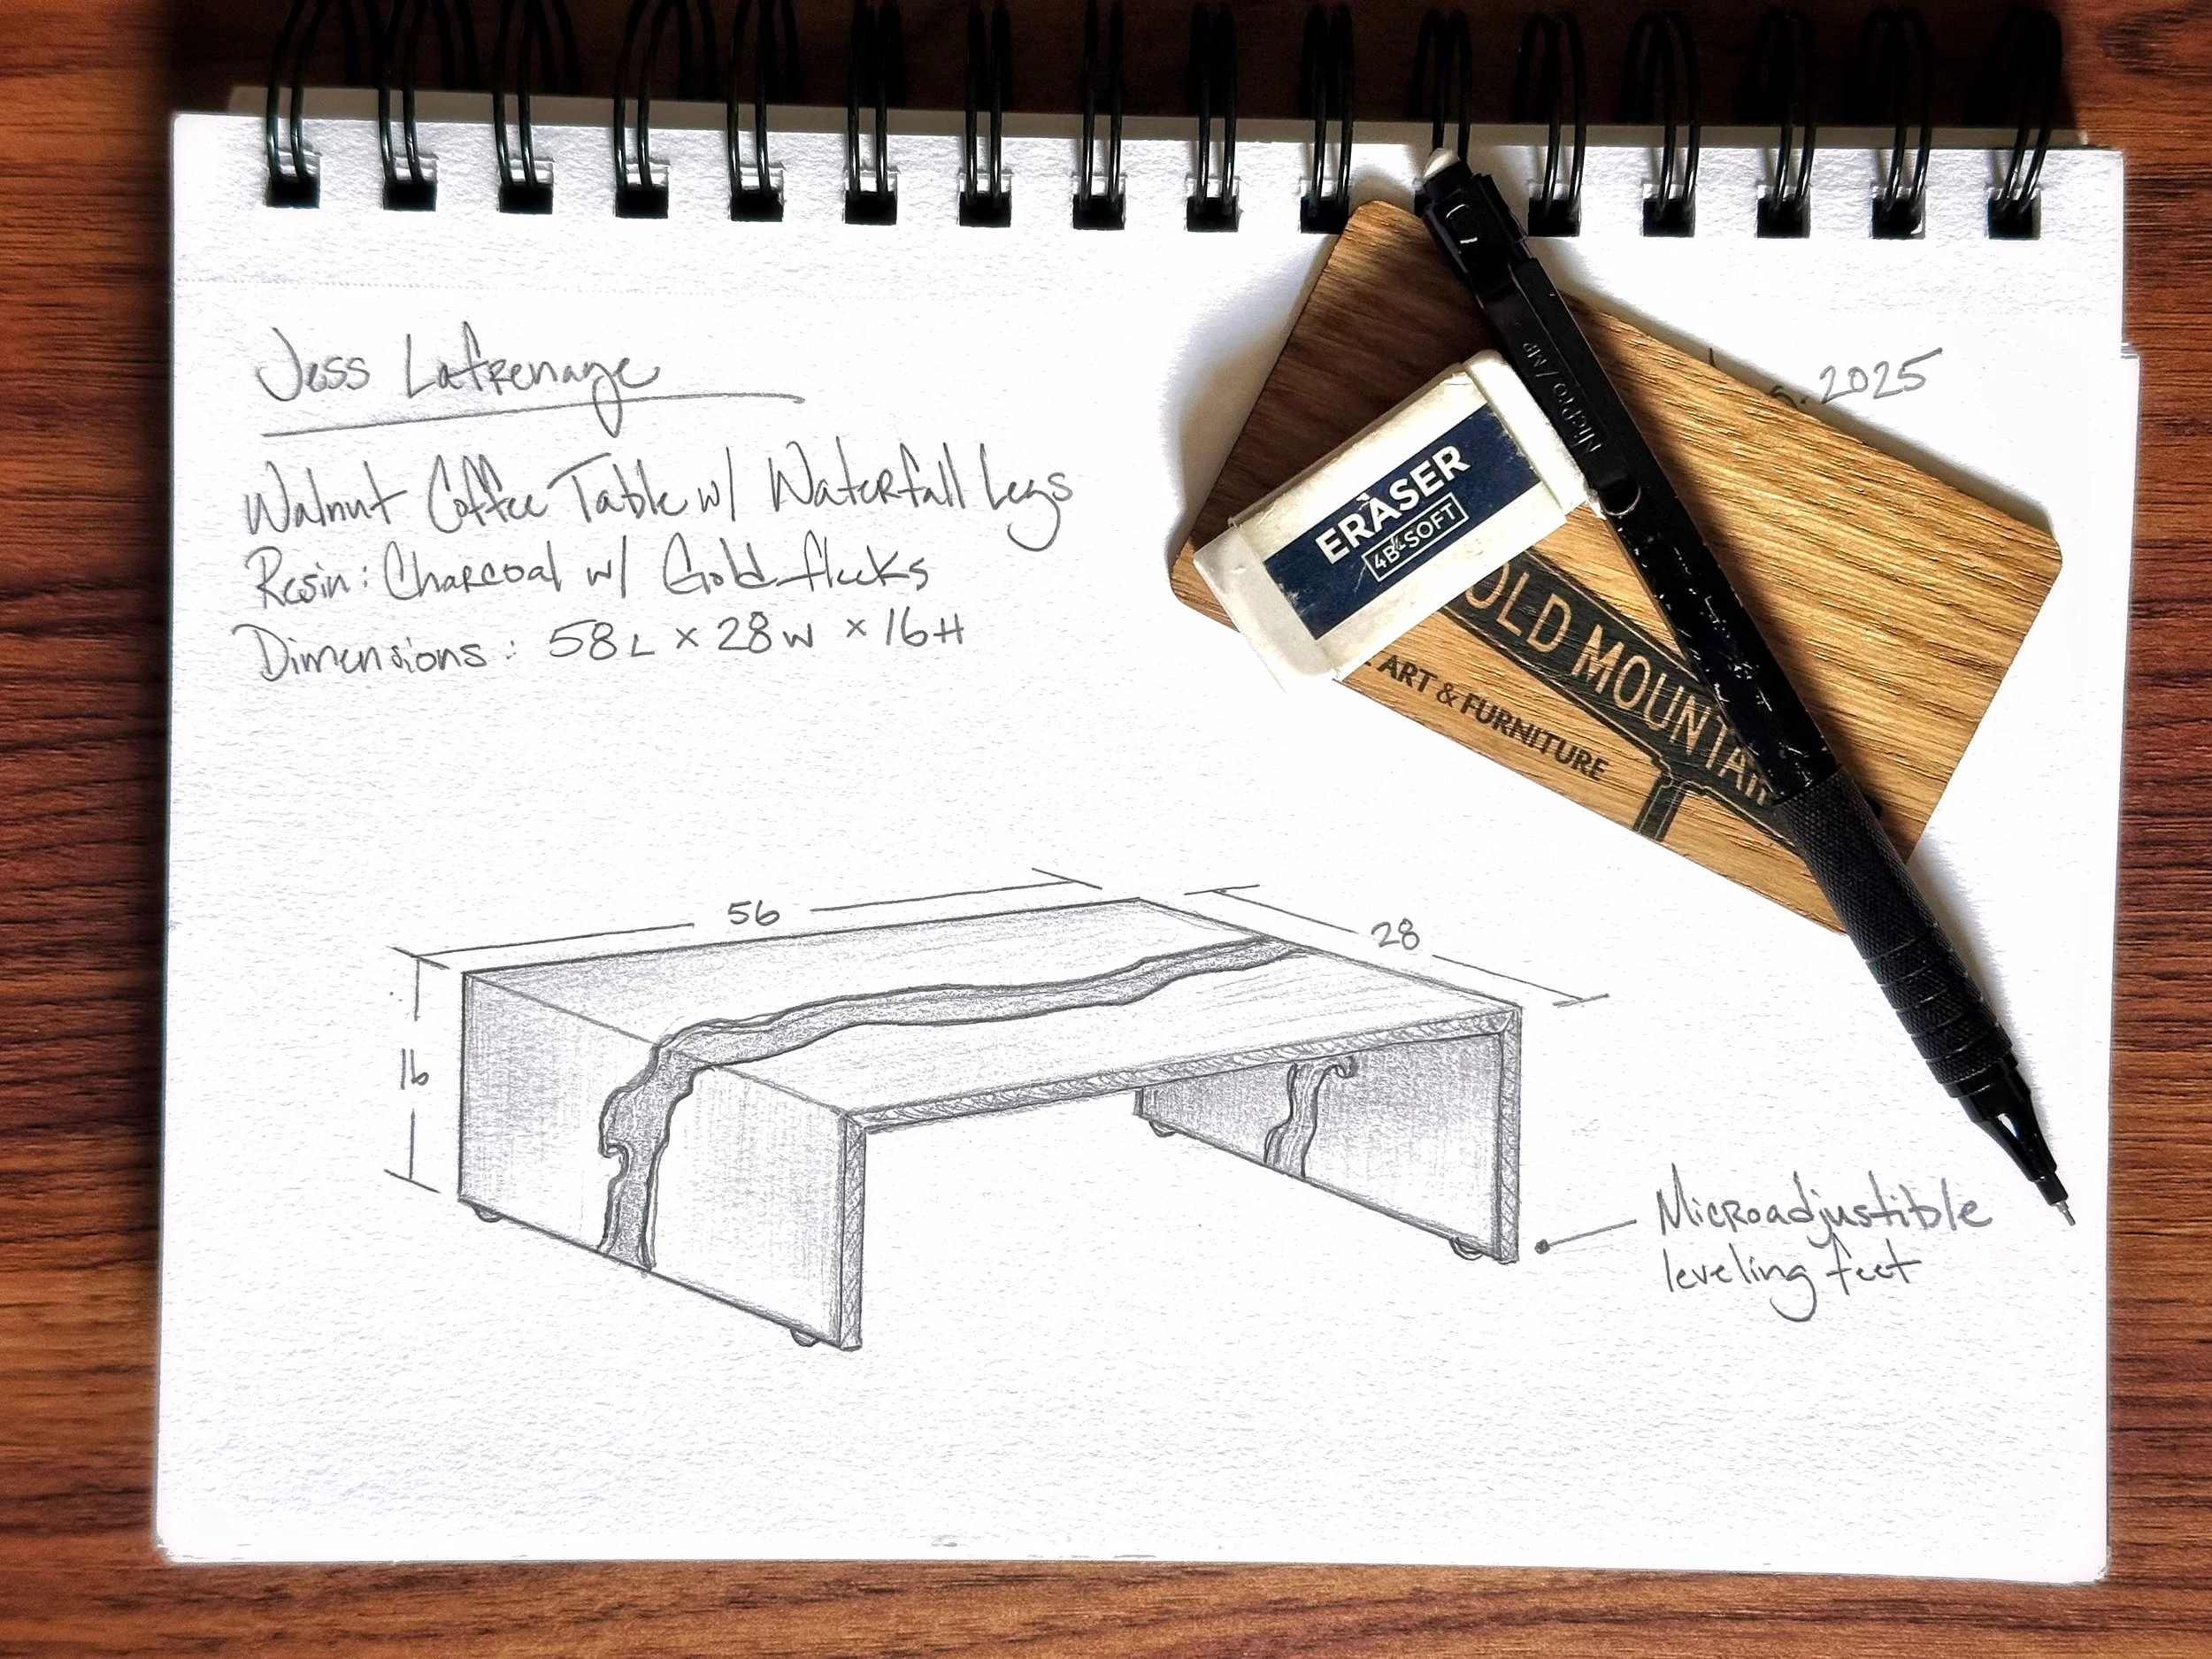 Jess Lafrenaye
6.2025
Walnut Coffee Table w/ Waterfall Legs
Resin: Charcoal w/ Gold flecks
Dimensions: 58L x 28W x 16H
ERASER
4B-SOFT
NicPro / MP
OLD MOUNTAIN
ART & FURNITURE
56
28
16
Microadjustible
leveling feet